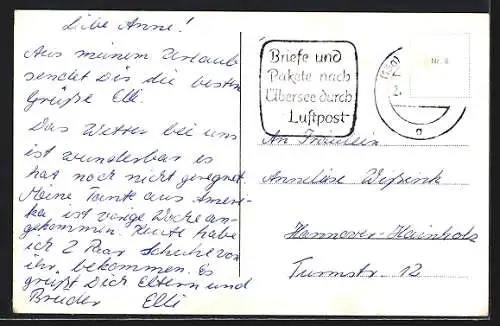 Liebe Anne!
Aus meinem Urlaub
sendet Dir die besten
Grüße Elli.
Das Wetter bei uns
ist wunderbar es
hat noch nicht geregnet.
Meine Tante aus Ameri-
ka ist vorige Woche an-
gekommen. Heute habe
ich 2 Paar Schuhe von
ihr bekommen. Es
grüßt Dich Eltern und
Bruder Elli
Briefe und
Pakete nach
Übersee durch
Luftpost
Nr. 8
An Fräulein
Anneliese
Hannover-Hainholz
Turmstr. 12